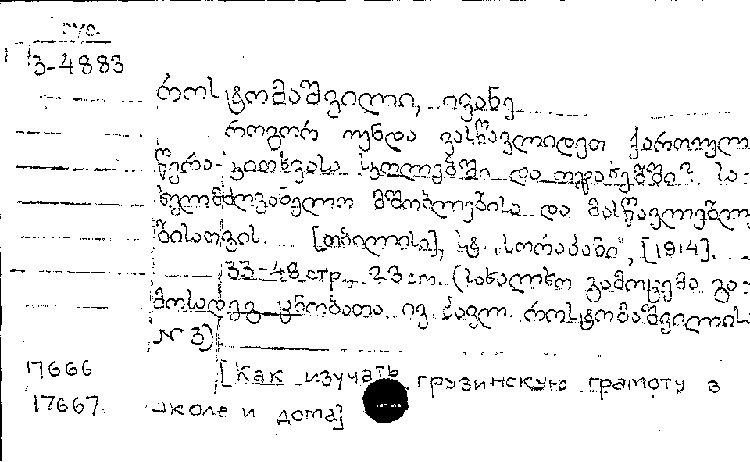 რუს.
3-4883
როსტომაშვილი, ივანე
როგორ უნდა ვასწავლიდეთ ქართულ
წერა-კითხვასა სკოლებში და ოჯახებში? სა-
ხელმძღვანელო მშობლებისა და მასწავლებლე
ბისათვის. [თბილისი], სტ. „სორაპანი", [1914].
33-48 стр. 23 см. (სახალხო გამოცემა გა-
მოსადეგ ცნობათა ივ. პავლ. როსტომაშვილისა
N 3)
17666 [Как изучать грузинскую грамоту в
17667. школе и дома]